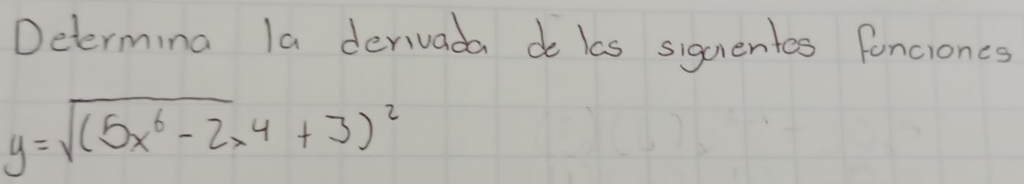 Determina la derivada de las siguientes funciones
y=√(5x⁶-2x⁴+3)²